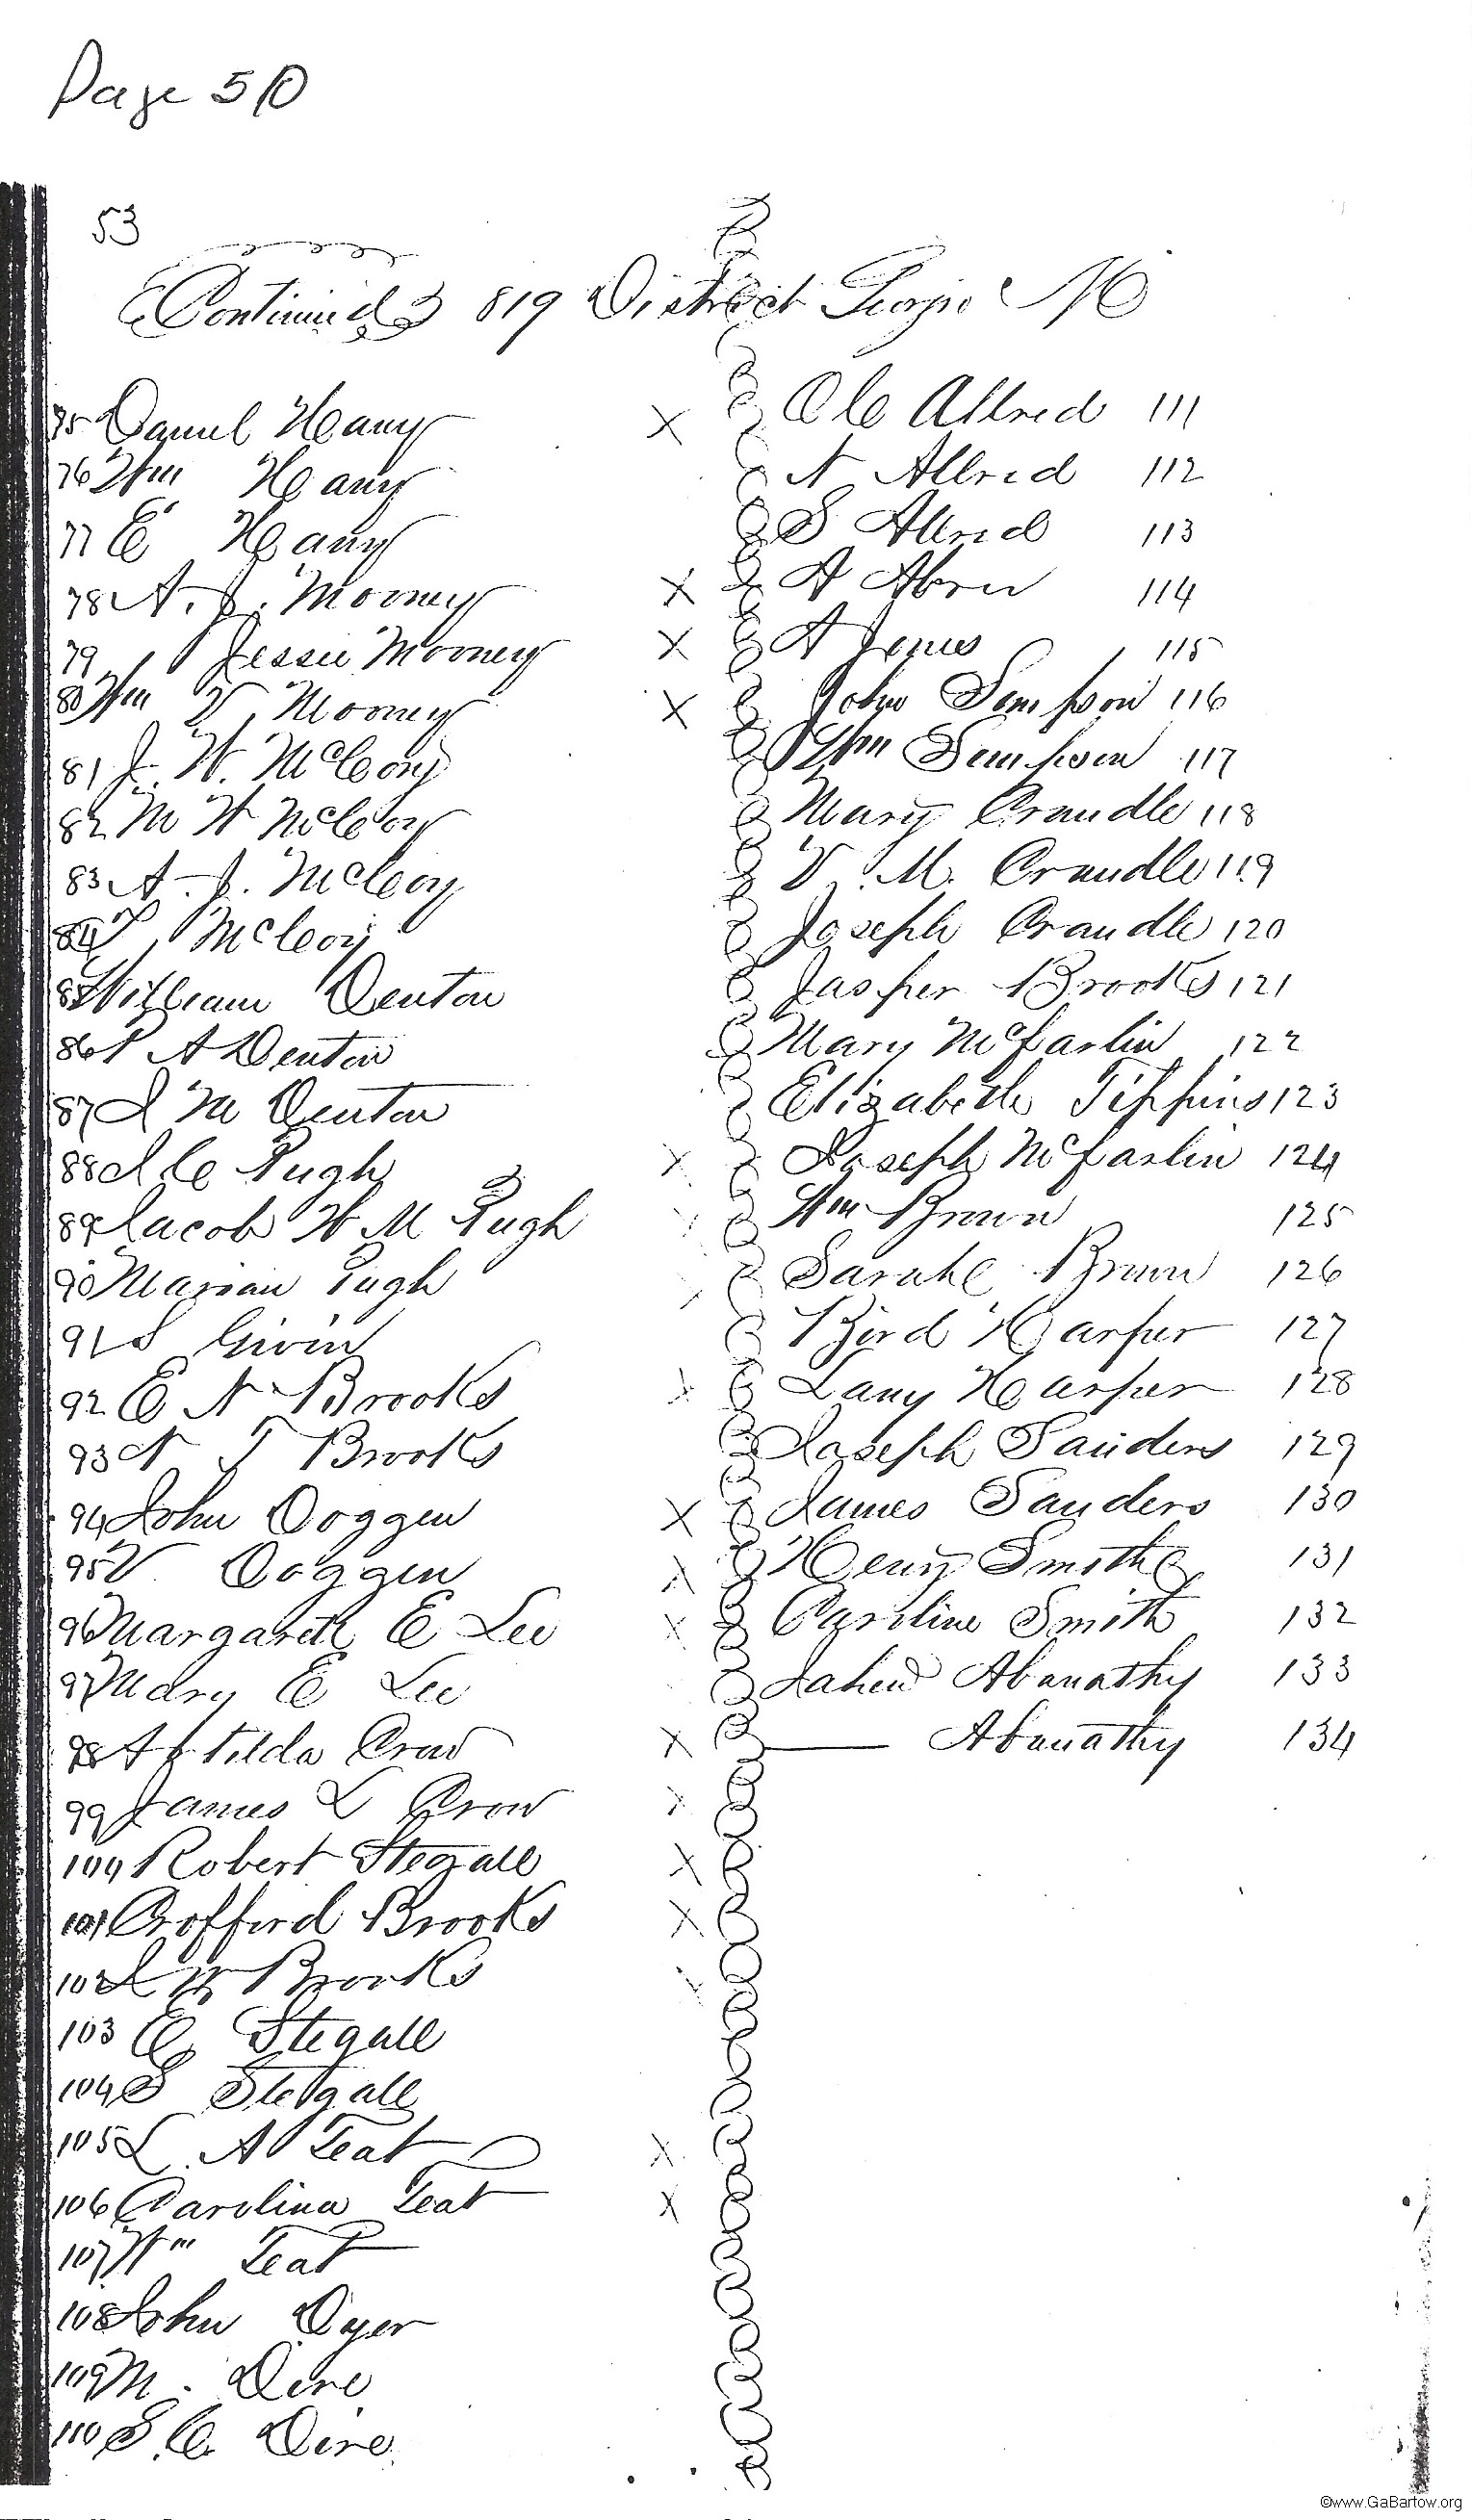 Page 50
53
Continued 819 District Georgia M
75 Daniel Hany X
76 Wm Hany
77 E Hany
78 A. J. Mooney X
79 Jessee Mooney X
80 Wm V. Mooney X
81 J. W. McCoy
82 M W McCoy
83 A. J. McCoy
84 McCoy
85 William Denton
86 P A Denton
87 J M Denton
88 J C Pugh X
89 Jacob W M Pugh
90 Marian Pugh
91 S Givin
92 E N Brooks X
93 N T Brooks
94 John Doggen X
95 V Doggen X
96 Margarett E Lee X
97 Mary E Lee
98 Crow X
99 James L Crow X
100 Robert Stegall X
101 Crofford Brooks X
102 L W Brooks
103 E Stegall
104 S Stegall
105 L. A Teat X
106 Carolina Teat X
107 Wm Teat
108 John Dyer
109 M. Dire
110 S. C. Dire
O C Allred 111
N Allred 112
S Allred 113
A 114
A Jones 115
John Simpson 116
Wm Simpson 117
Mary Crandle 118
V. M. Crandle 119
Joseph Crandle 120
Jasper Brooks 121
Mary McFarlin 122
Elizabeth Tippins 123
Joseph McFarlin 124
Wm Brown 125
Sarah C Brown 126
Bird Harper 127
Lany Harper 128
Joseph Sanders 129
James Sanders 130
Henry Smith 131
Caroline Smith 132
Abanathy 133
Abanathy 134
©www.GaBartow.org